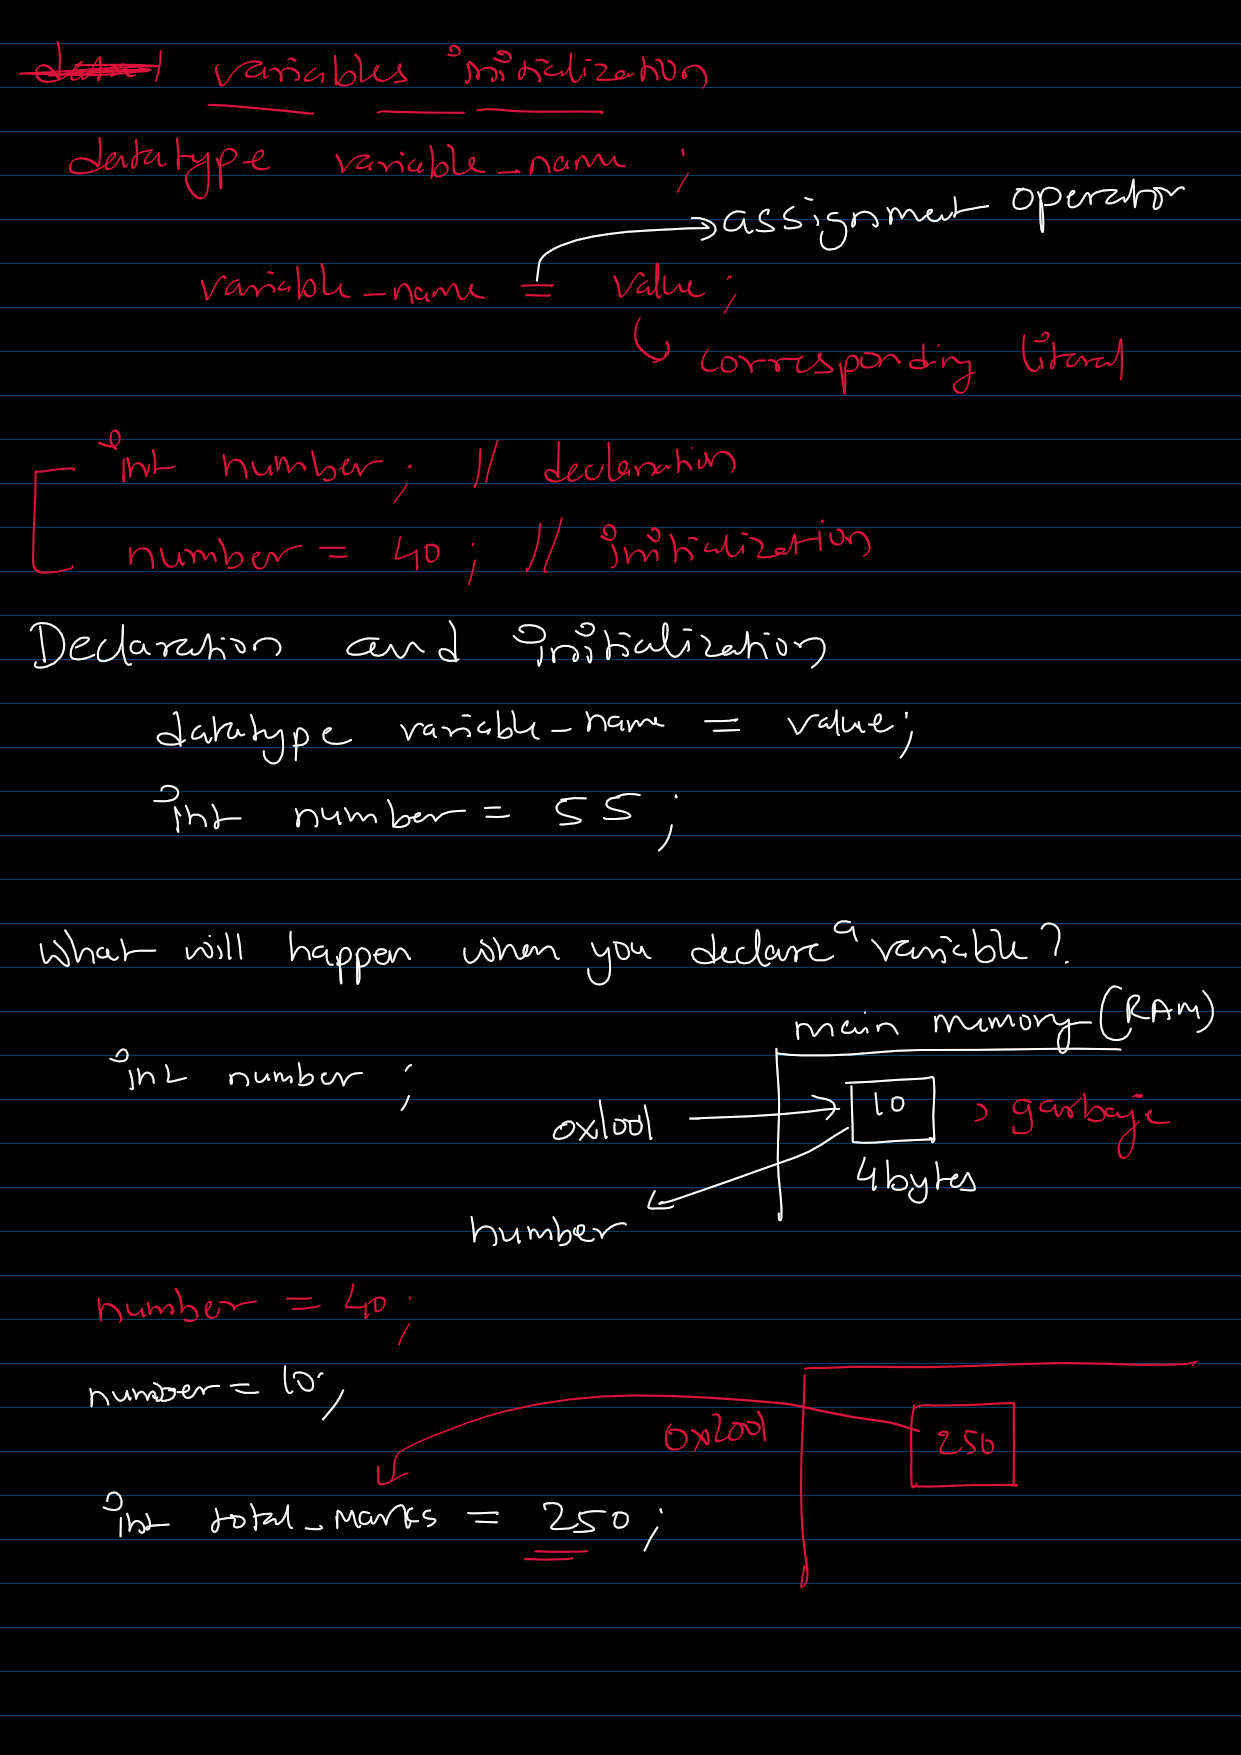 variables initialization
datatype variable_name ;
assignment operator
variable_name = value ;
corresponding literal
int number ; // declaration
number = 40 ; // initialization
Declaration and initialization
datatype variable_name = value ;
int number = 55 ;
What will happen when you declare a variable ?
main memory (RAM)
int number ;
0x1001 10 garbaje
4 bytes
number
number = 40 ;
number = 10 ;
0x2001 250
int total_marks = 250 ;